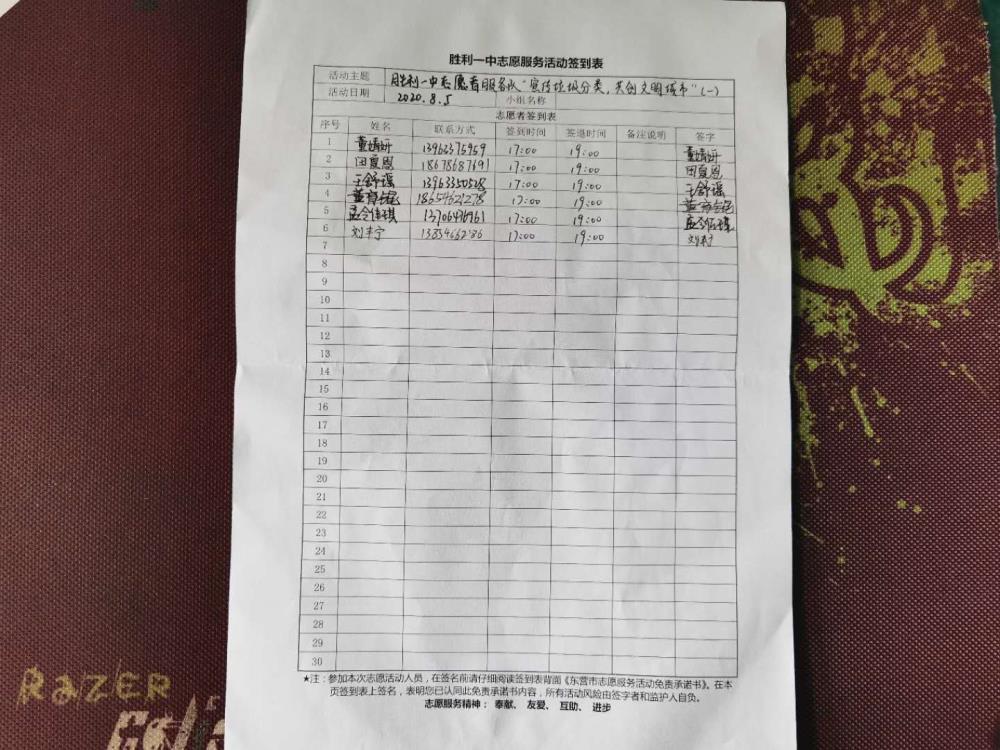 胜利一中志愿服务活动签到表
活动主题 胜利一中志愿者服务队"宣传垃圾分类，共创文明城市"(一)
活动日期 2020.8.5 小组名称
志愿者签到表
序号 姓名 联系方式 签到时间 签退时间 备注说明 签字
1 董靖妍 13963375959 17:00 19:00 董靖妍
2 田夏恩 18678687691 17:00 19:00 田夏恩
3 王舒瑶 13963350528 17:00 19:00 王舒瑶
4 18654621278 17:00 19:00
5 13706476961 17:00 19:00
6 刘丰宁 17:00 19:00 刘丰宁
7
8
9
10
11
12
13
14
15
16
17
18
19
20
21
22
23
24
25
26
27
28
29
30
★注：参加本次志愿活动人员，在签名前请仔细阅读签到表背面《东营市志愿服务活动免责承诺书》。在本
页签到表上签名，表明您已认同此免责承诺书内容，所有活动风险由签字者和监护人自负。
志愿服务精神： 奉献、 友爱、 互助、 进步
RAZER